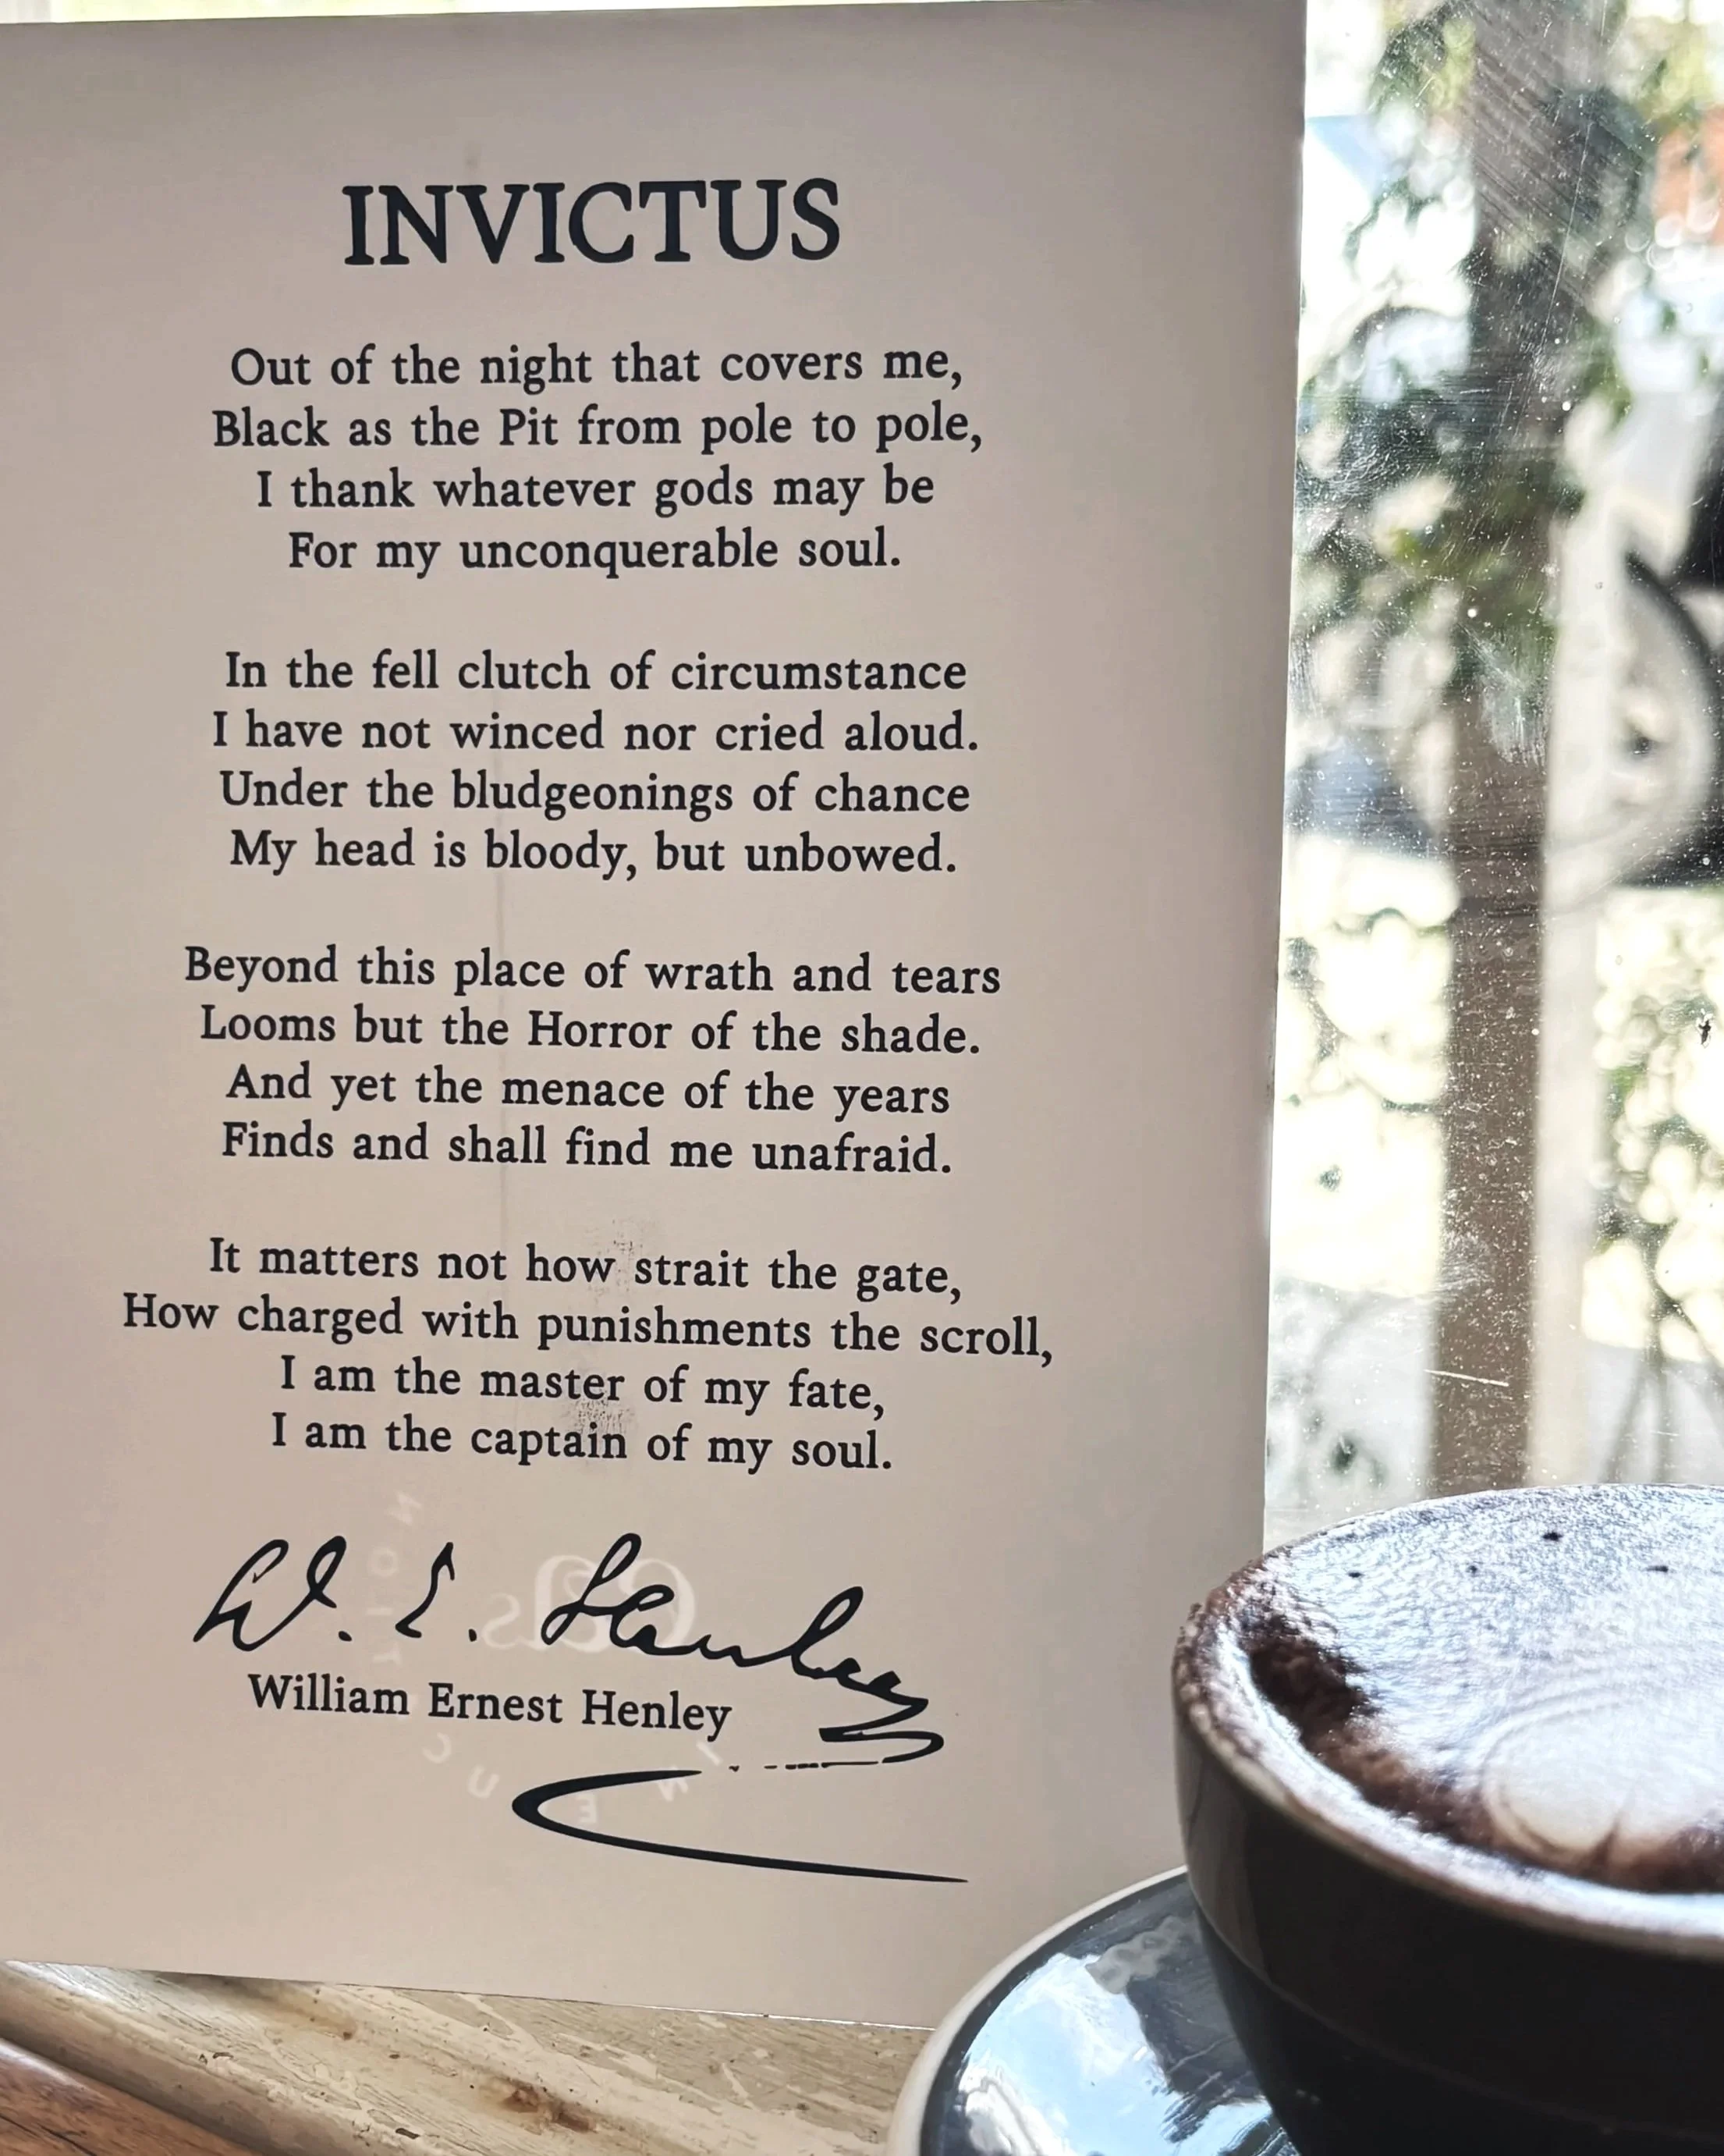 INVICTUS
Out of the night that covers me,
Black as the Pit from pole to pole,
I thank whatever gods may be
For my unconquerable soul.
In the fell clutch of circumstance
I have not winced nor cried aloud.
Under the bludgeonings of chance
My head is bloody, but unbowed.
Beyond this place of wrath and tears
Looms but the Horror of the shade.
And yet the menace of the years
Finds and shall find me unafraid.
It matters not how strait the gate,
How charged with punishments the scroll,
I am the master of my fate,
I am the captain of my soul.
W. E. Henley
William Ernest Henley